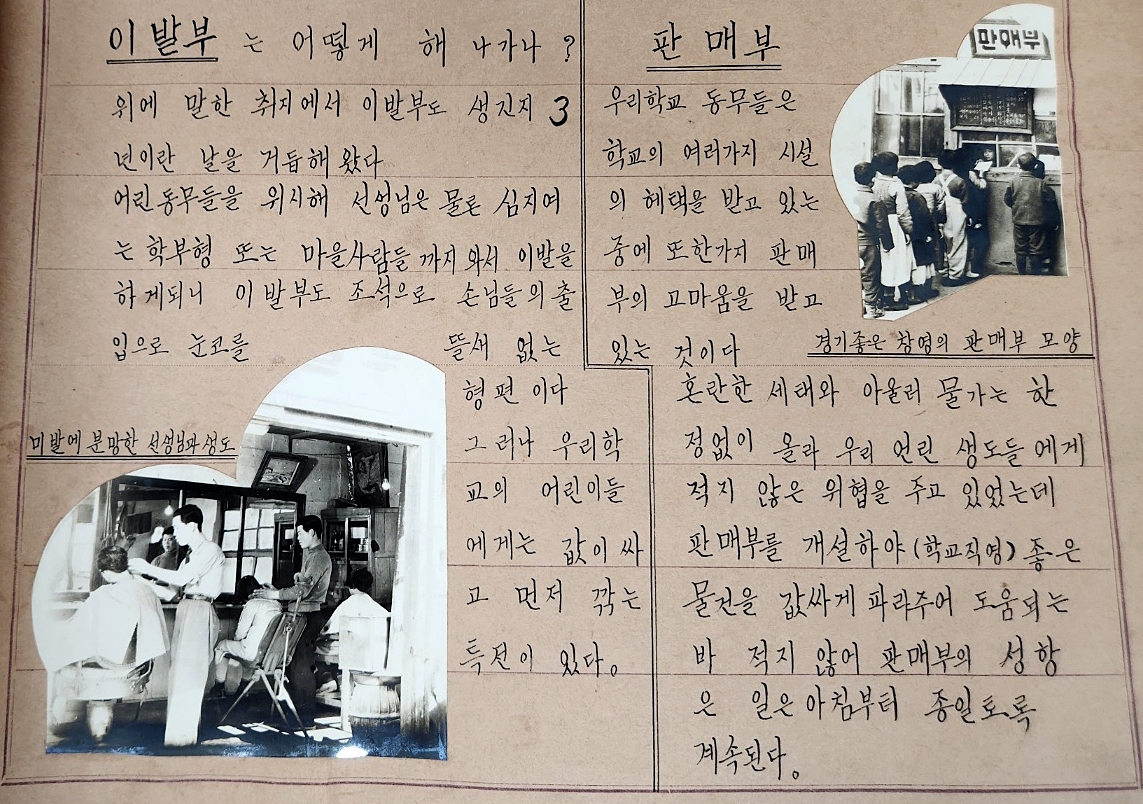 이발부 는 어떻게 해 나가나 ?
위에 말한 취지에서 이발부도 생긴지 3
년이란 날을 거듭해 왔다
어린동무들을 위시해 선성님은 물론 심지여
는 학부형 또는 마을사람들 까지 와서 이발을
하게되니 이발부도 조석으로 손님들의 출
입으로 눈코를 뜰새 없는
형편이다
그러나 우리학
교의 어린이들
에게는 값이 싸
고 먼저 깎는
특전이 있다。
미발에 분망한 선성님과 생도
판매부
우리학교 동무들은
학교의 여러가지 시설
의 혜택을 받고 있는
중에 또한가지 판매
부의 고마움을 받고
있는 것이다
판매부
경기좋은 창영의 판매부 모양
혼란한 세태와 아울러 물가는 한
정없이 올라 우리 언린 생도들에게
적지 않은 위협을 주고 있었는데
판매부를 개설하야 (학교직영) 좋은
물건을 값싸게 파라주어 도움되는
바 적지 않어 판매부의 성항
은 일은아침부터 종일토록
계속된다。